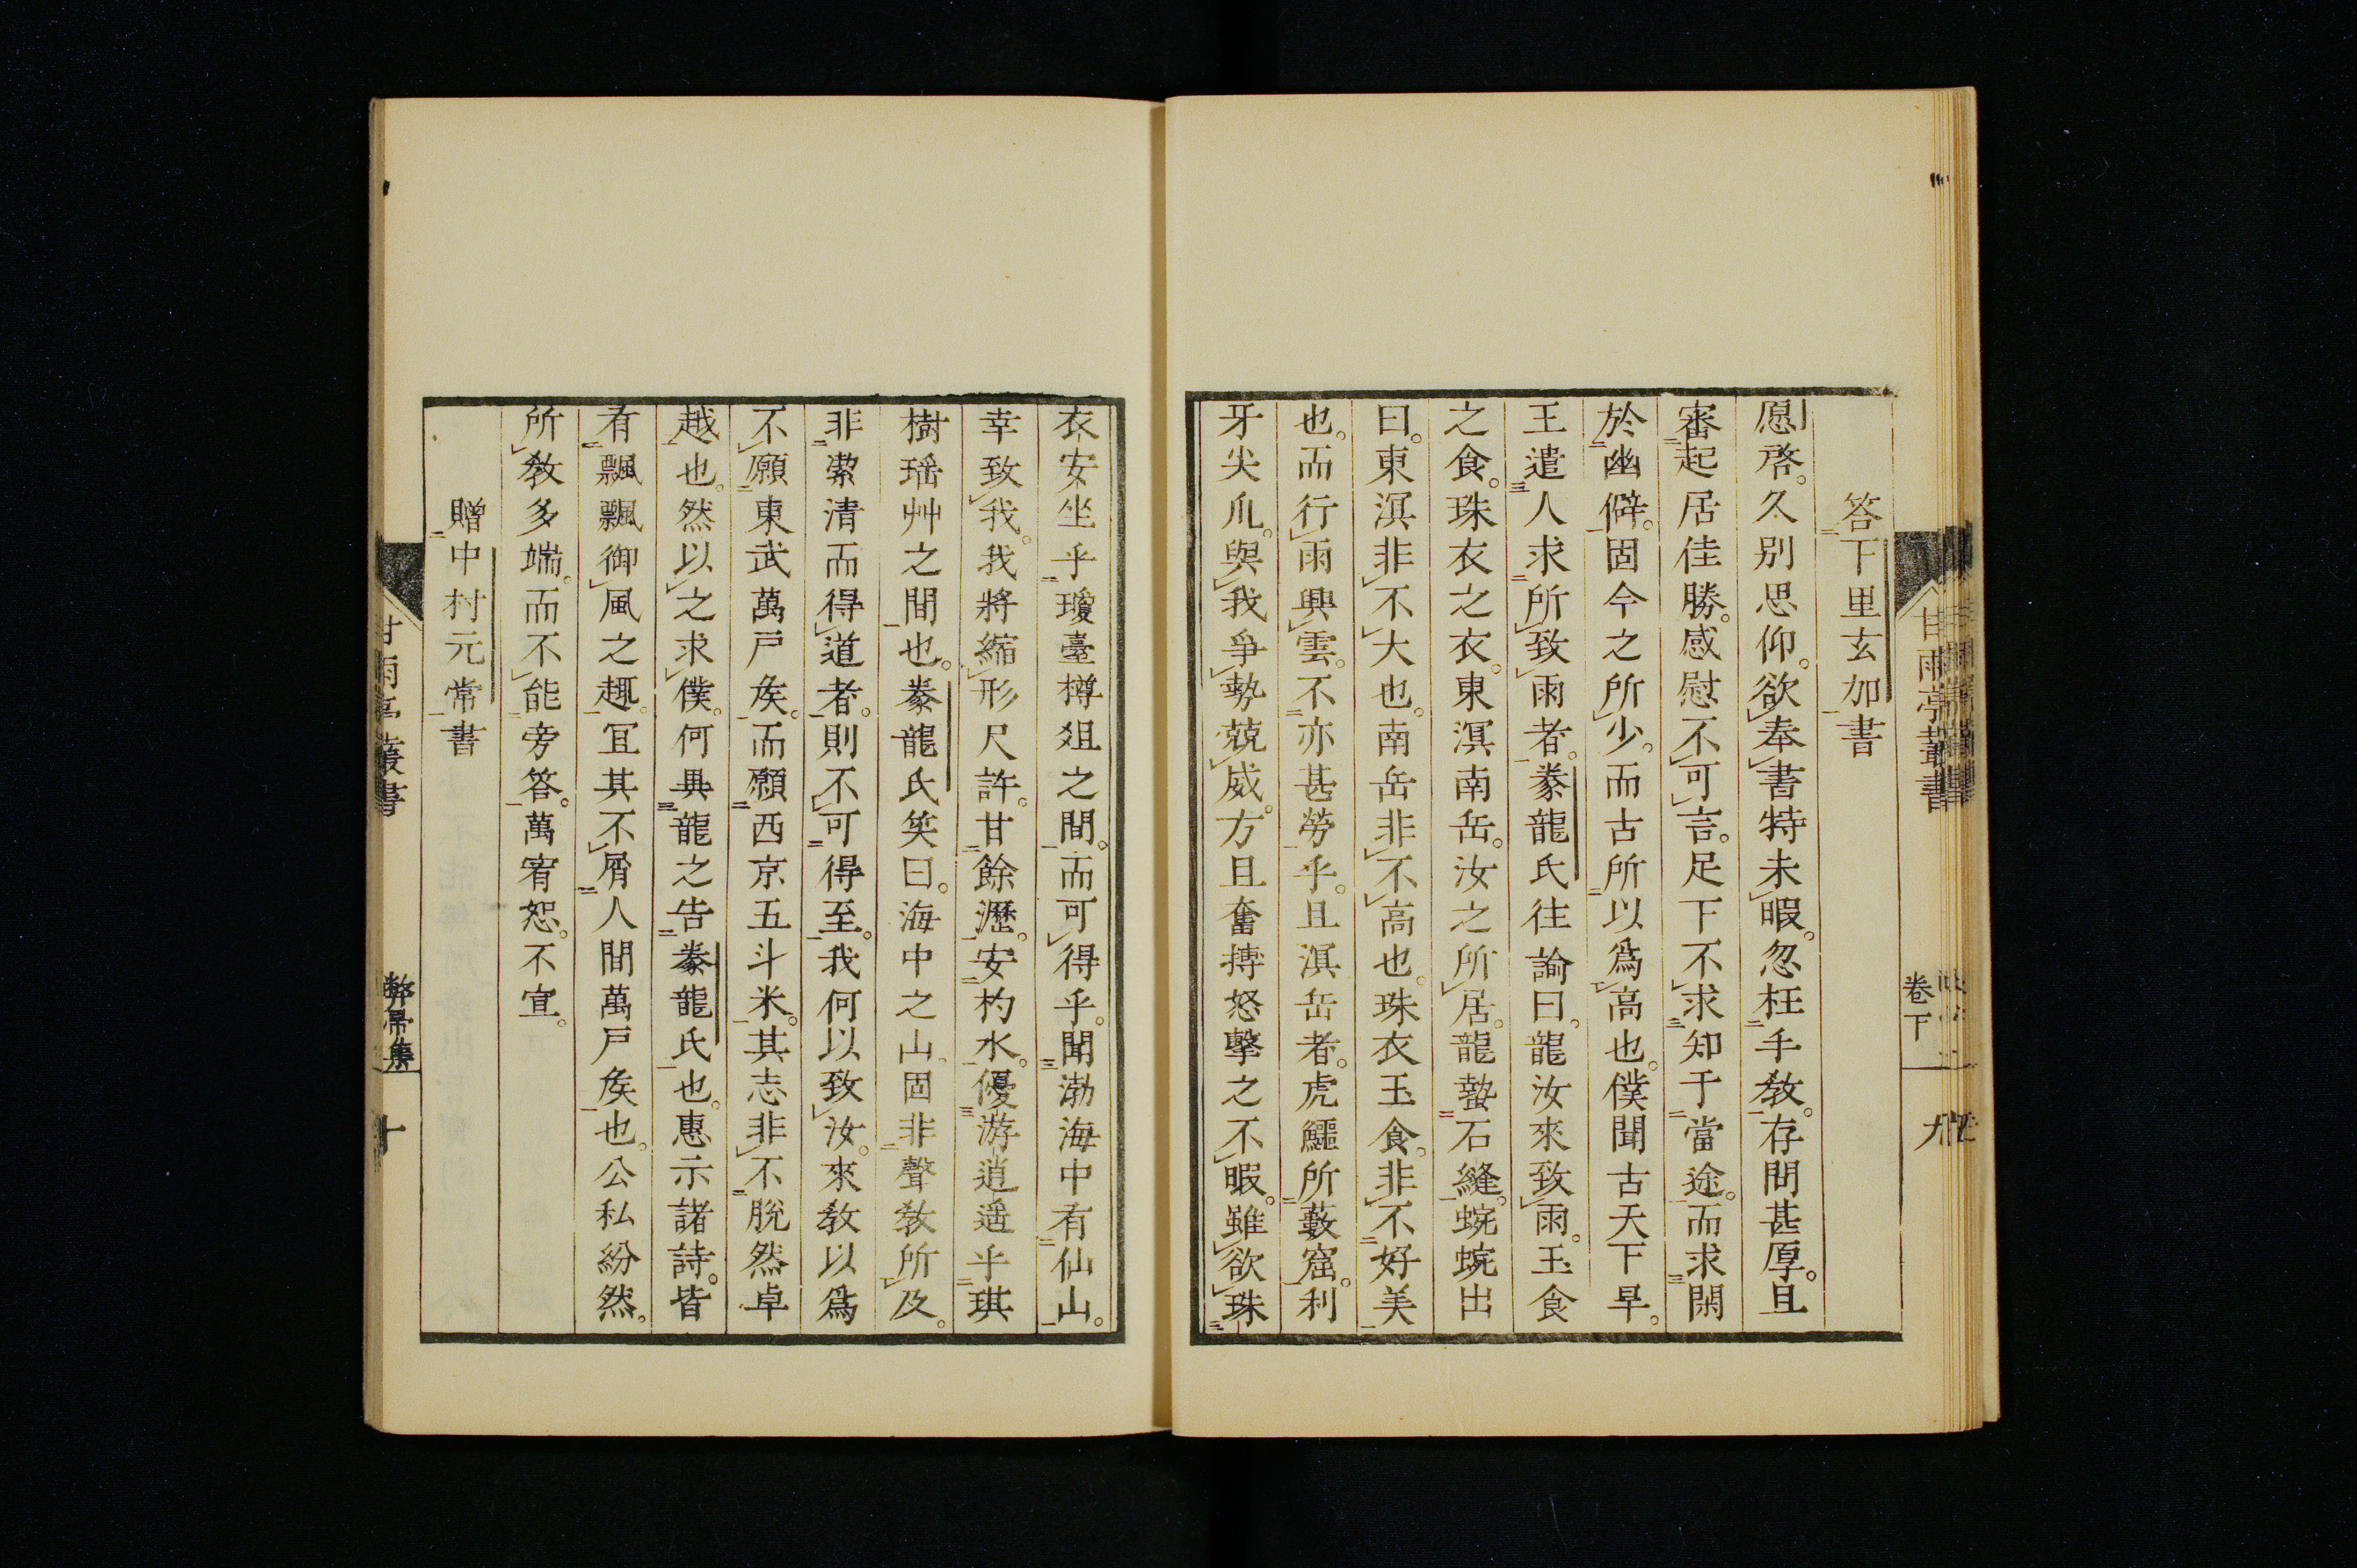 答下里玄加書
愿啓。久別思仰。欲奉書特未暇。忽枉手敎。存問甚厚。且
審起居佳勝。感慰不可言。足下不求知于當途。而求閑
於幽僻。固今之所少。而古所以爲高也。僕聞古天下旱。
王遣人求所致雨者。豢龍氏往諭曰。龍汝來致雨。玉食
之食。珠衣之衣。東溟南岳。汝之所居。龍蟄石縫。蜿蜿出
曰。東溟非不大也。南岳非不高也。珠衣玉食。非不好美
也。而行雨興雲。不亦甚勞乎。且溟岳者。虎鱷所藪窟。利
牙尖爪。與我爭勢競威。方且奮搏怒擊之不暇。雖欲珠
衣安坐乎瓊臺樽俎之間。而可得乎。聞渤海中有仙山。
幸致我。我將縮形尺許。甘餘瀝。安杓水。優游逍遥乎琪
樹瑶艸之間也。豢龍氏笑曰。海中之山。固非聲敎所及。
非潔清而得道者。則不可得至。我何以致汝。來敎以爲
不願東武萬戶矦。而願西京五斗米。其志非不脫然卓
越也。然以之求僕。何異龍之告豢龍氏也。惠示諸詩。皆
有飄飄御風之趣。宜其不屑人間萬戶矦也。公私紛然。
所敎多端。而不能旁答。萬宥恕。不宣。
贈中村元常書
甘雨亭叢書
卷下
九
甘雨亭叢書
弊帚集
十